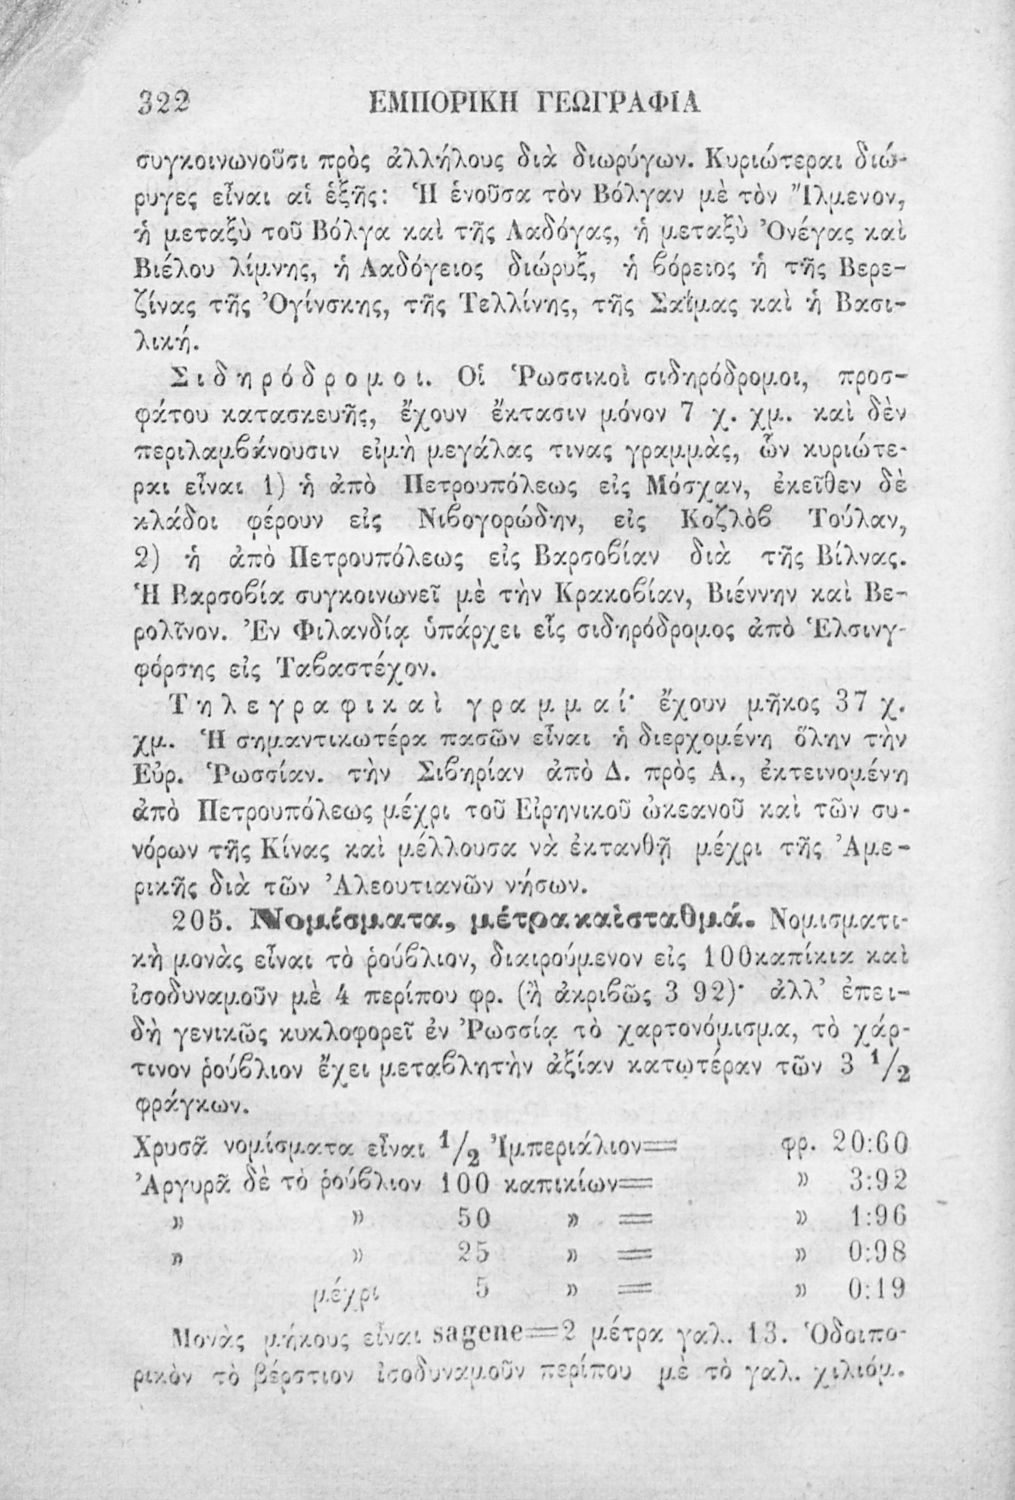 322 ΕΜΠΟΡΙΚΗ ΓΕΩΓΡΑΦΙΑ
συγκοινωνοῦσι πρὸς ἀλλήλους διὰ διωρύγων. Κυριώτεραι διώ-
ρυγες εἶναι αἱ ἑξῆς: Ἡ ἑνοῦσα τὸν Βόλγαν μὲ τὸν Ἴλμενον,
ἡ μεταξὺ τοῦ Βόλγα καὶ τῆς Λαδόγας, ἡ μεταξὺ Ὀνέγας καὶ
Βιέλου λίμνης, ἡ Λαδόγειος διώρυξ, ἡ βόρειος ἡ τῆς Βερε-
ζίνας τῆς Ὀγίνσκης, τῆς Τελλίνης, τῆς Σαΐμας καὶ ἡ Βασι-
λική.
Σιδηρόδρομοι. Οἱ Ῥωσσικοὶ σιδηρόδρομοι, προσ-
φάτου κατασκευῆς, ἔχουν ἔκτασιν μόνον 7 χ. χμ. καὶ δὲν
περιλαμβάνουσιν εἰμὴ μεγάλας τινας γραμμὰς, ὧν κυριώτε-
ραι εἶναι 1) ἡ ἀπὸ Πετρουπόλεως εἰς Μόσχαν, ἐκεῖθεν δὲ
κλάδοι φέρουν εἰς Νιβογορώδην, εἰς Κοζλὸβ Τούλαν,
2) ἡ ἀπὸ Πετρουπόλεως εἰς Βαρσοβίαν διὰ τῆς Βίλνας.
Ἡ Βαρσοβία συγκοινωνεῖ μὲ τὴν Κρακοβίαν, Βιέννην καὶ Βε-
ρολῖνον. Ἐν Φιλανδίᾳ ὑπάρχει εἷς σιδηρόδρομος ἀπὸ Ἑλσινγ-
φόρσης εἰς Ταβαστέχον.
Τηλεγραφικαὶ γραμμαί· ἔχουν μῆκος 37 χ.
χμ. Ἡ σημαντικωτέρα πασῶν εἶναι ἡ διερχομένη ὅλην τὴν
Εὐρ. Ῥωσσίαν. τὴν Σιβηρίαν ἀπὸ Δ. πρὸς Α., ἐκτεινομένη
ἀπὸ Πετρουπόλεως μέχρι τοῦ Εἰρηνικοῦ ὠκεανοῦ καὶ τῶν συ-
νόρων τῆς Κίνας καὶ μέλλουσα νὰ ἐκτανθῇ μέχρι τῆς Ἀμε-
ρικῆς διὰ τῶν Ἀλεουτιανῶν νήσων.
205. Νομίσματα, μέτρα καὶ σταθμά. Νομισματι-
κὴ μονὰς εἶναι τὸ ῥούβλιον, διαιρούμενον εἰς 100 καπίκια καὶ
ἰσοδυναμοῦν μὲ 4 περίπου φρ. (ἢ ἀκριβῶς 3 92)· ἀλλ' ἐπει-
δὴ γενικῶς κυκλοφορεῖ ἐν Ῥωσσίᾳ τὸ χαρτονόμισμα, τὸ χάρ-
τινον ῥούβλιον ἔχει μεταβλητὴν ἀξίαν κατωτέραν τῶν 3 1/2
φράγκων.
Χρυσᾶ νομίσματα εἶναι 1/2 Ἰμπεριάλιον= φρ. 20:60
Ἀργυρᾶ δὲ τὸ ῥούβλιον 100 καπικίων= » 3:92
» » 50 » = » 1:96
» » 25 » = » 0:98
μέχρι 5 » = » 0:19
Μονὰς μήκους εἶναι sagene=2 μέτρα γαλ. 13. Ὁδοιπο-
ρικὸν τὸ βέρστιον ἰσοδυναμοῦν περίπου μὲ τὸ γαλ. χιλιόμ.